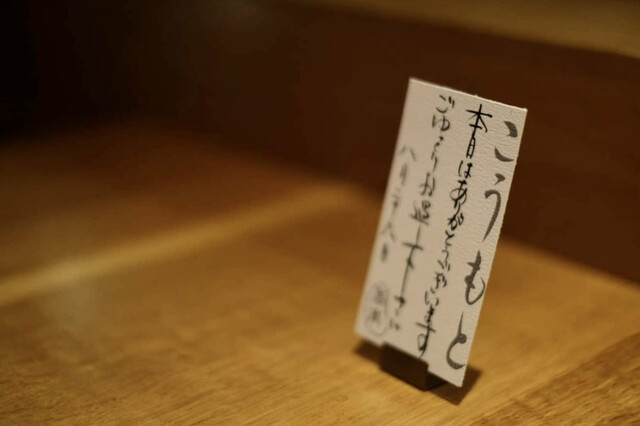 こうもと
本日はありがとうございます
ごゆっくりお過ごし下さい
八月二十八日